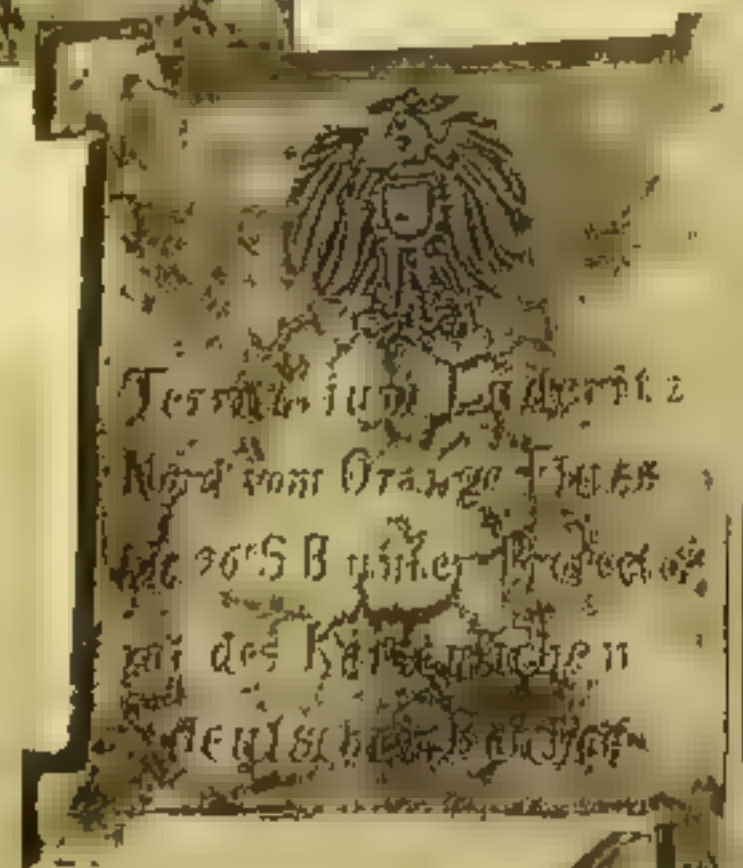 Territorium Lüderitz
Nord vom Orange Fluss
bis 26° S B unter Protecto
rat des Kaiserlichen
deutschen Reiches